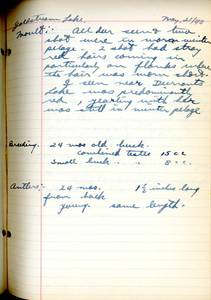 Goldstream Lake. May, 21/45
Moult:- All deer seen & two
shot were in worn winter
pelage. 2 shot had stray
red hairs coming in
particularly on flanks where
the hair was worn short.
1 seen near Durants
Lake was predominantly
red, yearling with her
was still in winter pelage.
Breeding. 24 mos old buck.
combined testes 15 cc
small buck " 8 cc.
Antlers:- 24 mos. 1 1/2 inches long
from back
young. same length.